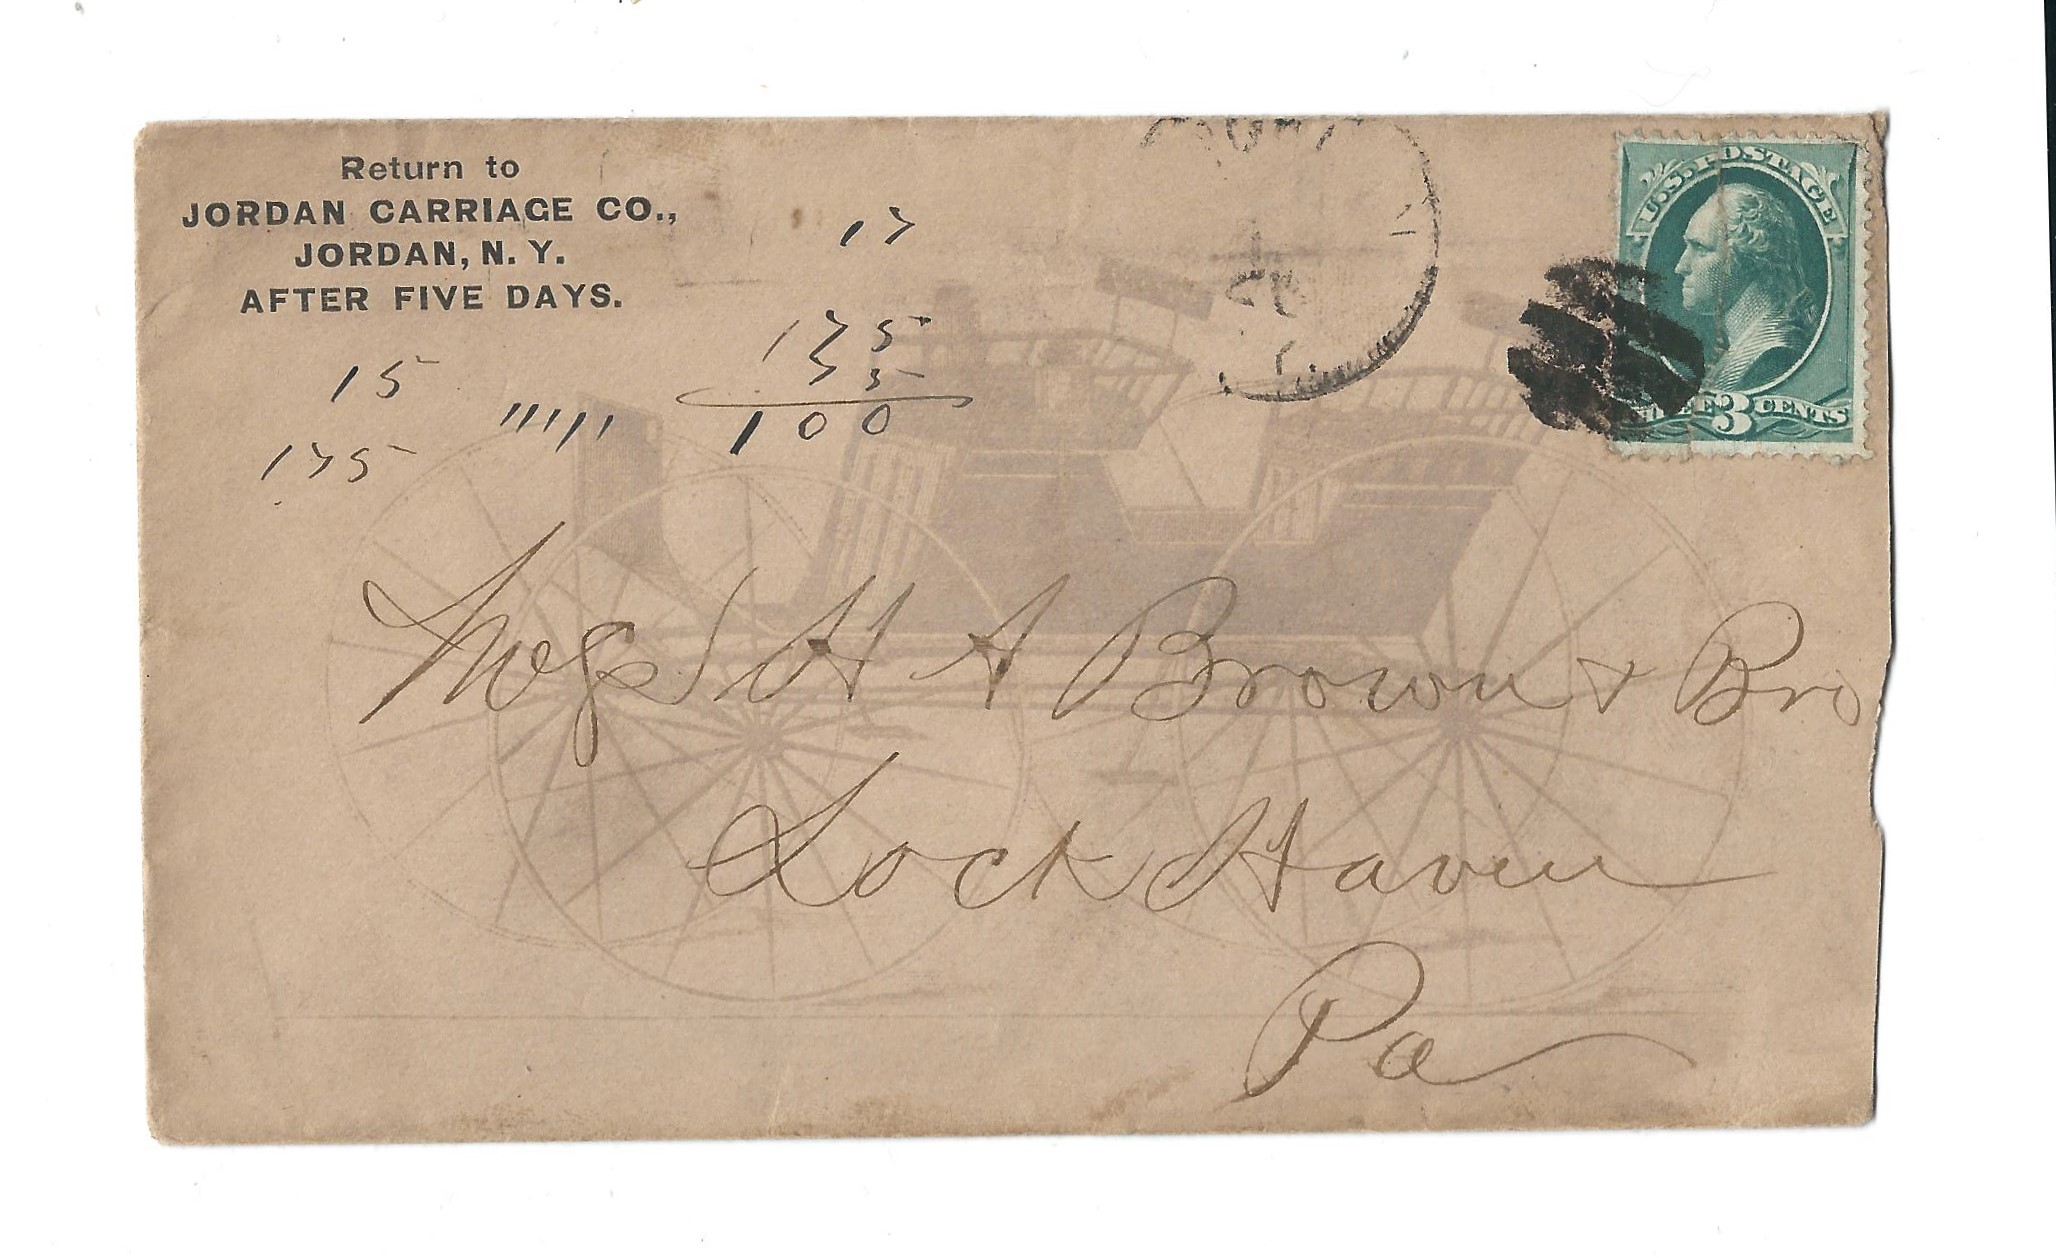 Return to
JORDAN CARRIAGE CO.,
JORDAN, N. Y.
AFTER FIVE DAYS.
17
175
75
100
15
175
U.S. POSTAGE
THREE 3 CENTS
H A Brown & Bro
Lock Haven
Pa